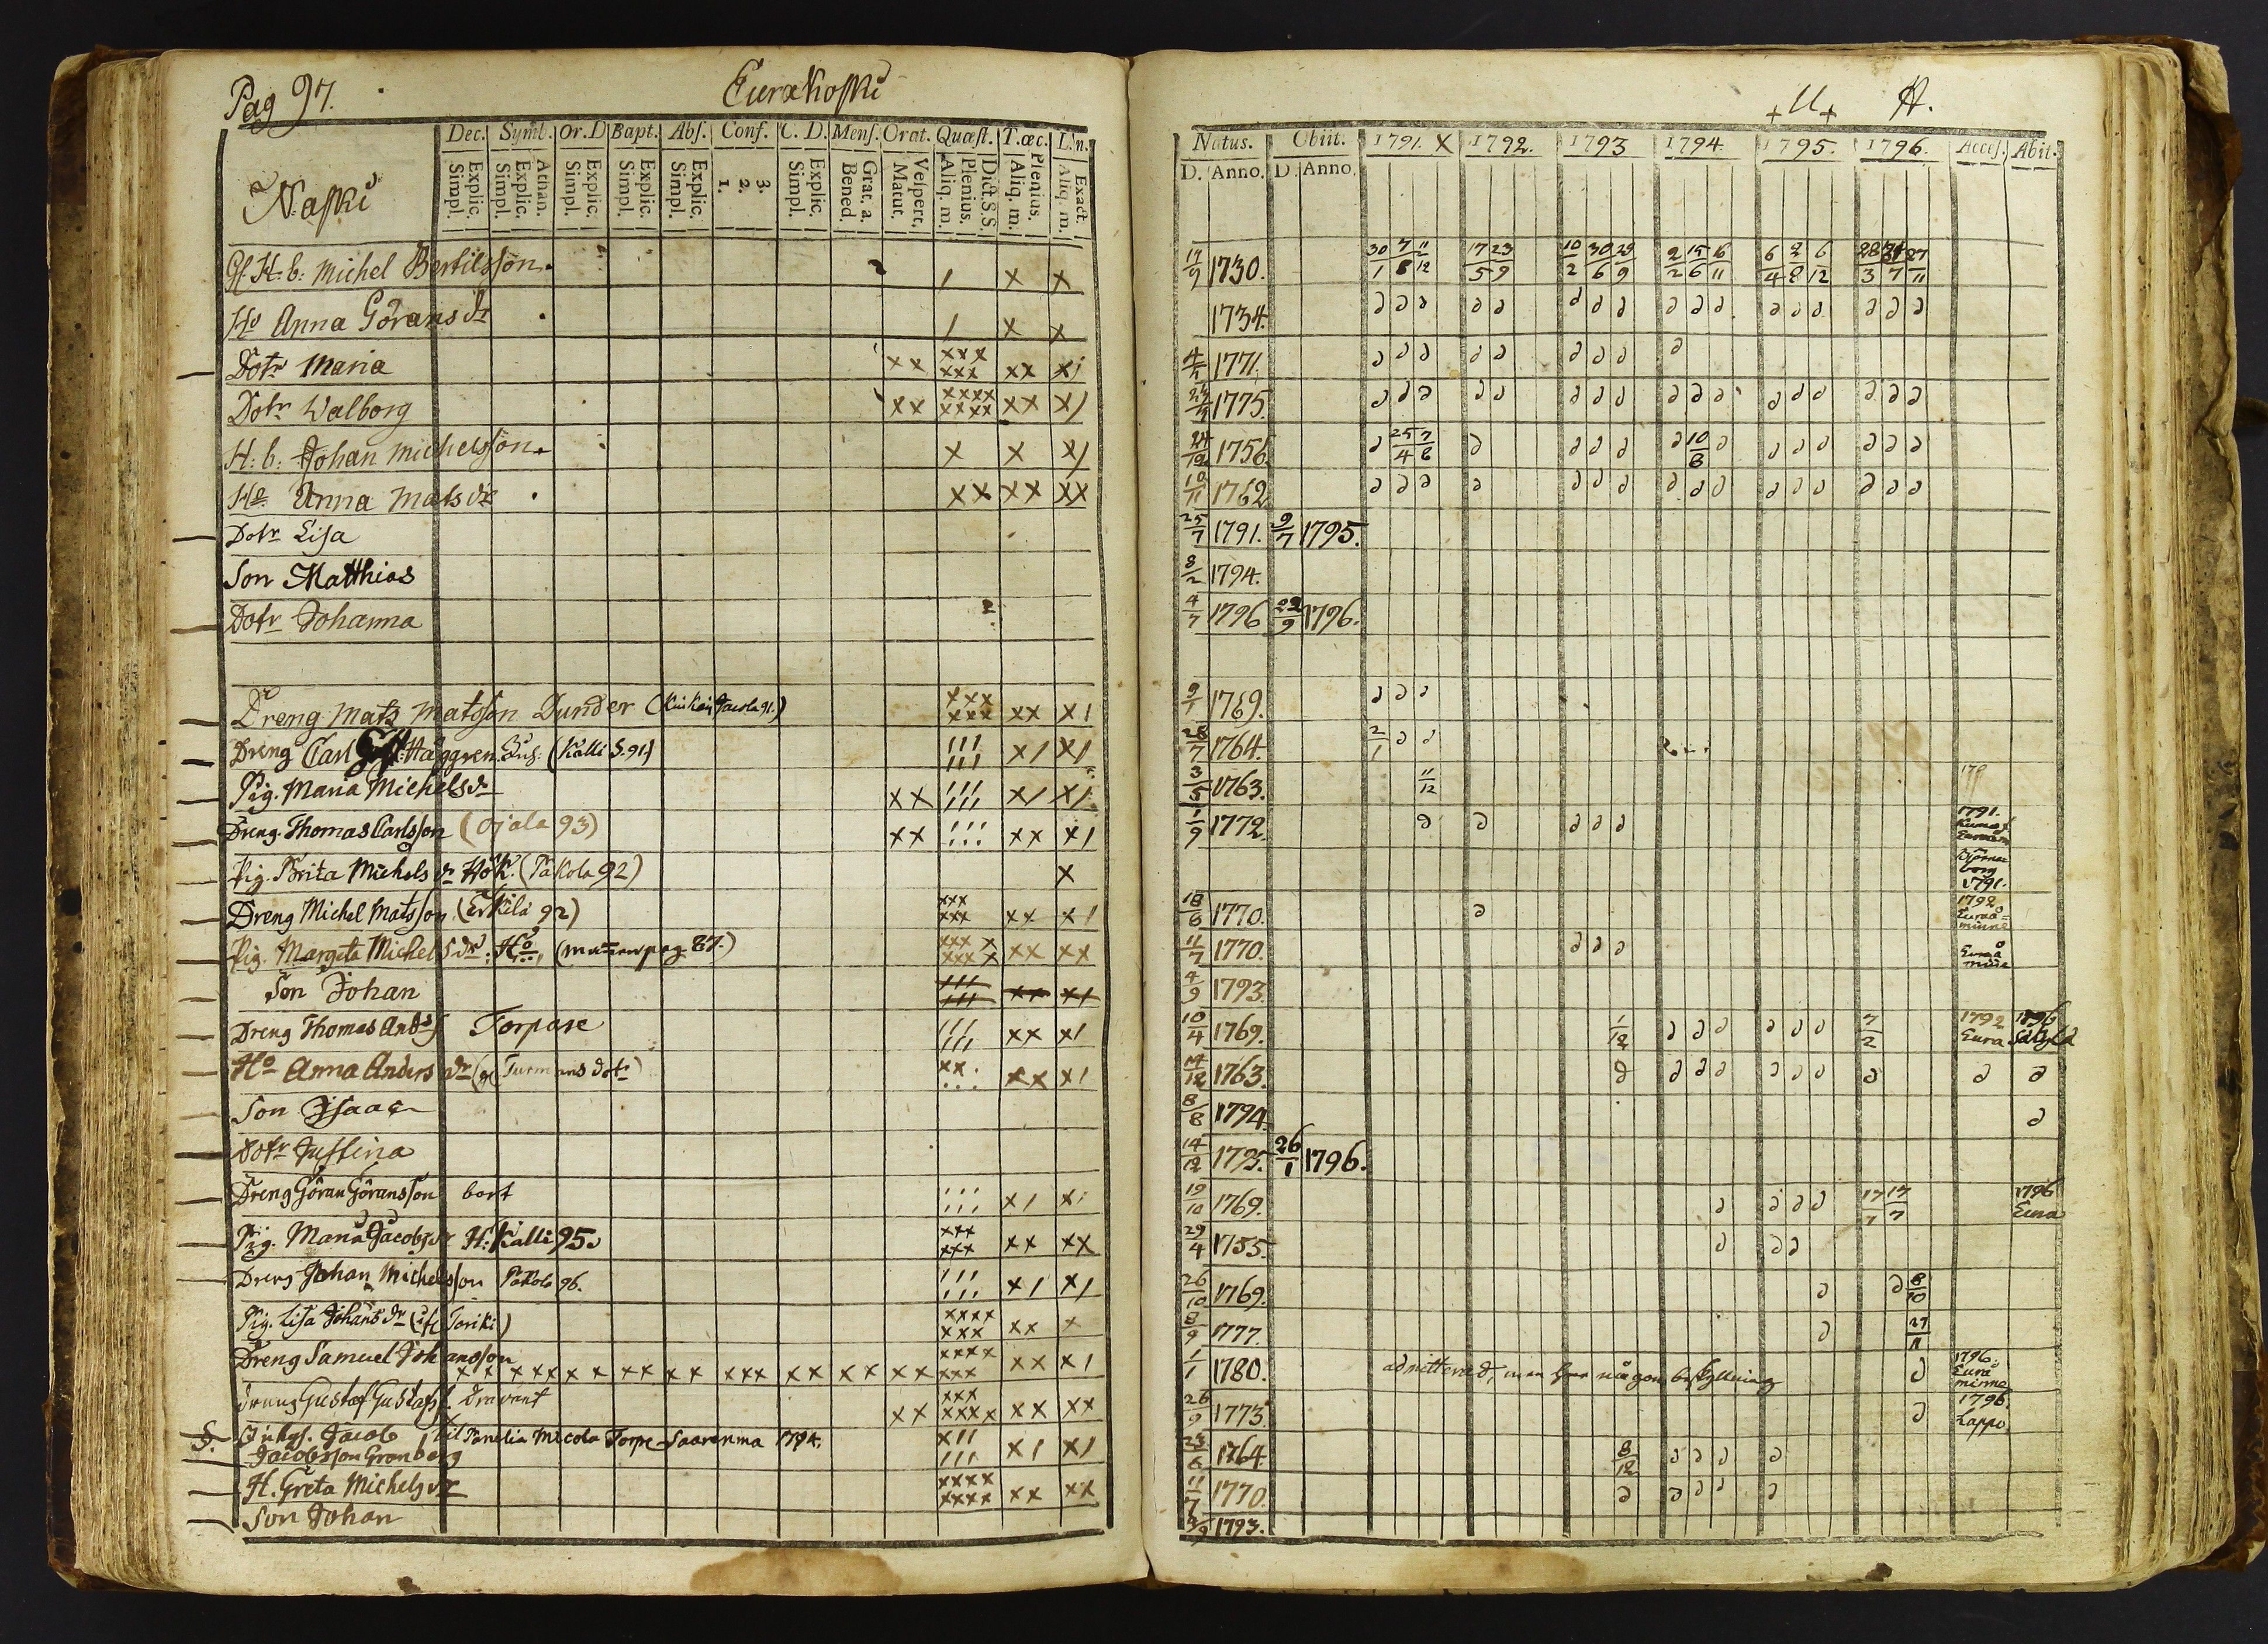 Pag 97. Eurakoski
Dec. Symb. Or.D Bapt. Abs. Conf. C. D. Mens. Orat. Quæst. T.œc. L.n.
Explic. Simpl. Athan. Explic. Simpl. Explic. Simpl. Explic. Simpl. Explic. Simpl. 3. 2. 1. Explic. Simpl. Grat. a. Bened. Vespert. Matut. Dict.S.S. Plenius. Aliq. m. Plenius. Aliq. m. Exact. Aliq. m.
Naski
Gf. H. b: Michel Bertilsson / x x
Ho Anna Görans dr / x x
Dotr Maria xx xxx xxx xx x/
Dotr Walborg xx xxxx xxxx xx x/
H: b: Johan Michelsson x x x/
Ho Anna Mats dr xx xx xx
Dotr Lisa
Son Matthias
Dotr Johanna
Dreng Mats Matsson Dunder xxx xxx xx x/
Dreng Carl Häggren (Källi S. 91) /// /// x/ x/
Pig. Maria Michelsdr xx /// /// x/ x/
Dreng Thomas Carlsson (Ojala 93) xx /// /// xx x/
Pig. Brita Michels dr Hök. (Pakola 92) x
Dreng Michel Matsson (Erkilä 92) xxx xxx xx x/
Pig. Margeta Michels dr. Ho, pag 87.) xxx x xxx x xx xx
Son Johan /// /// xx x/
Dreng Thomas And:s Torpare /// /// xx x/
Ho Anna Anders dr dotr) xx xx x/
Son Isaac
Dotr Justina
Dreng Göran Göransson bort /// /// x/ x/
Pig. Maria Jacobs dr H: Källi 95. xxx xxx xx xx
Dreng Johan Michelsson Pakola 96. /// /// x/ x/
Pig. Lisa Johans dr xxxx xxx xx x
Dreng Samuel Johansson xx xxx xx xx xx xxx xx xx xx xxxx xxx xx x/
Dreng Gustaf Gustafss. Dravant xx xxx xxxx xx xx
S. Inhys. Jacob Jacobsson Granberg til Panelia Micola Torp Saarenma 1794. x// /// x/ x/
H. Greta Michels dr xxxx xxxx xx xx
Son Johan
+ U + A.
Natus. Obiit. 1791. x 1792. 1793 1794. 1795. 1796. Acces. Abit.
D. Anno. D. Anno.
17/9 1730. 30/1 7/8 11/12 17/5 23/9 10/2 30/6 29/9 2/2 15/6 16/11 6/4 2/8 6/12 28/3 27/11
1734.
4/ 1771.
1775.
24/12 1756. 25/4 7/8 10/8
10/11 1762
25/7 1791. 9/7 1795.
8/2 1794.
4/7 1796 22/9 1796.
9/1 1769.
28/7 1764. 2/1
3/5 1763. 11/12
1/9 1772. 1791.
Björneborg 1791.
18/6 1770. 1792 Euraåminne
11/7 1770. Euraåminne
4/9 1793.
10/4 1769. 1/12 7/2 1792 Eura 1796
14/12 1763.
8/8 1794.
14/12 1795. 26/1 1796.
19/10 1769. 17/7 17/7 1796 Eura
29/4 1755.
26/10 1769. 8/10
8/9 1777. 27/11
1/1 1780. admitterad, men har någon beskyllning 1796. Euraåminne
26/9 1773. 1796. Lappo
23/6 1764. 8/12
11/7 1770.
4/9 1793.